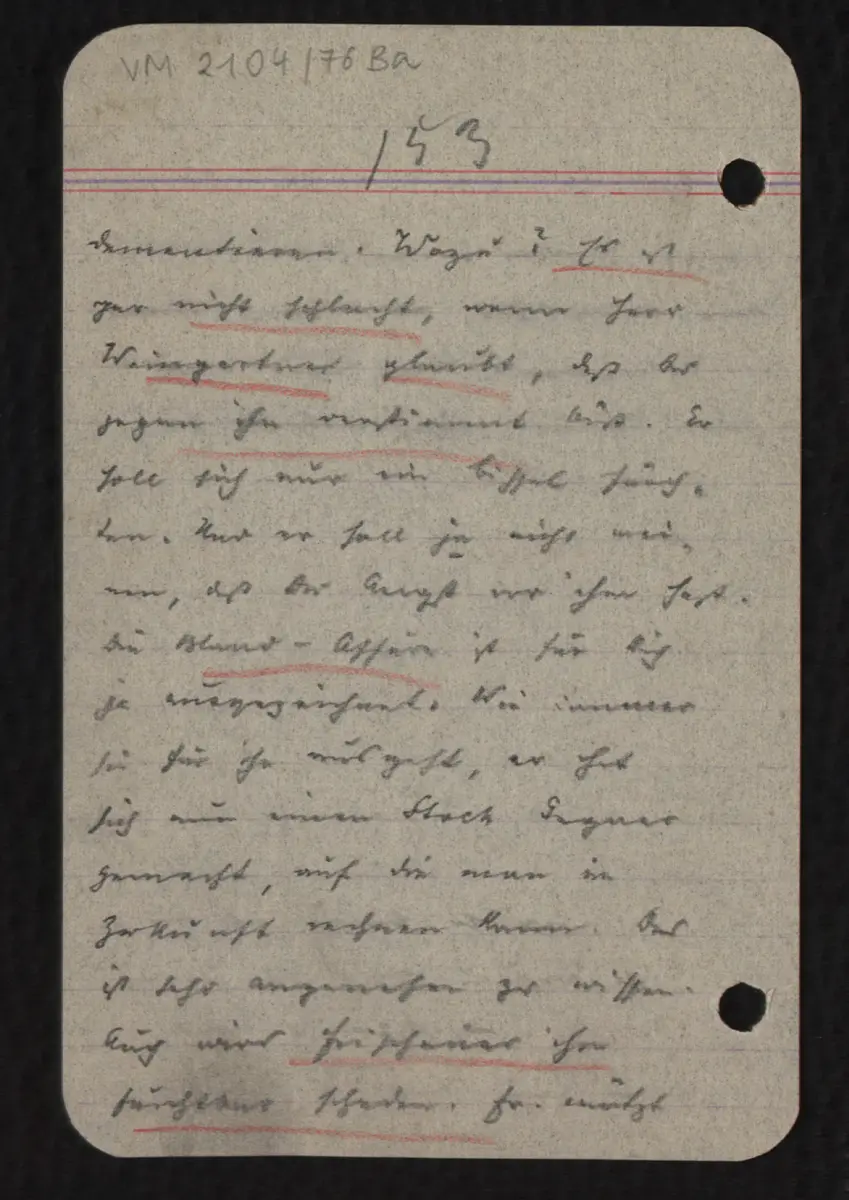 VM 2104/76 Ba
153
dementieren. Wozu? Es ist
gar nicht schlecht, wenn Herr
Weingartner glaubt, daß Du
gegen ihn verstimmt bist. Er
soll sich nur ein bissel fürch-
ten. Und er soll ja nicht mei-
nen, daß Du Angst vor ihm hast.
Die Bland-Affäre ist für Dich
ja ausgezeichnet. Wie immer
sie für ihn ausgeht, er hat
sich nun einen Stock Gegner
gemacht, auf die man in
Zukunft rechnen kann. Das
ist sehr angenehm zu wissen.
Auch wird Frischauer ihm
furchtbar schaden. Er. nützt